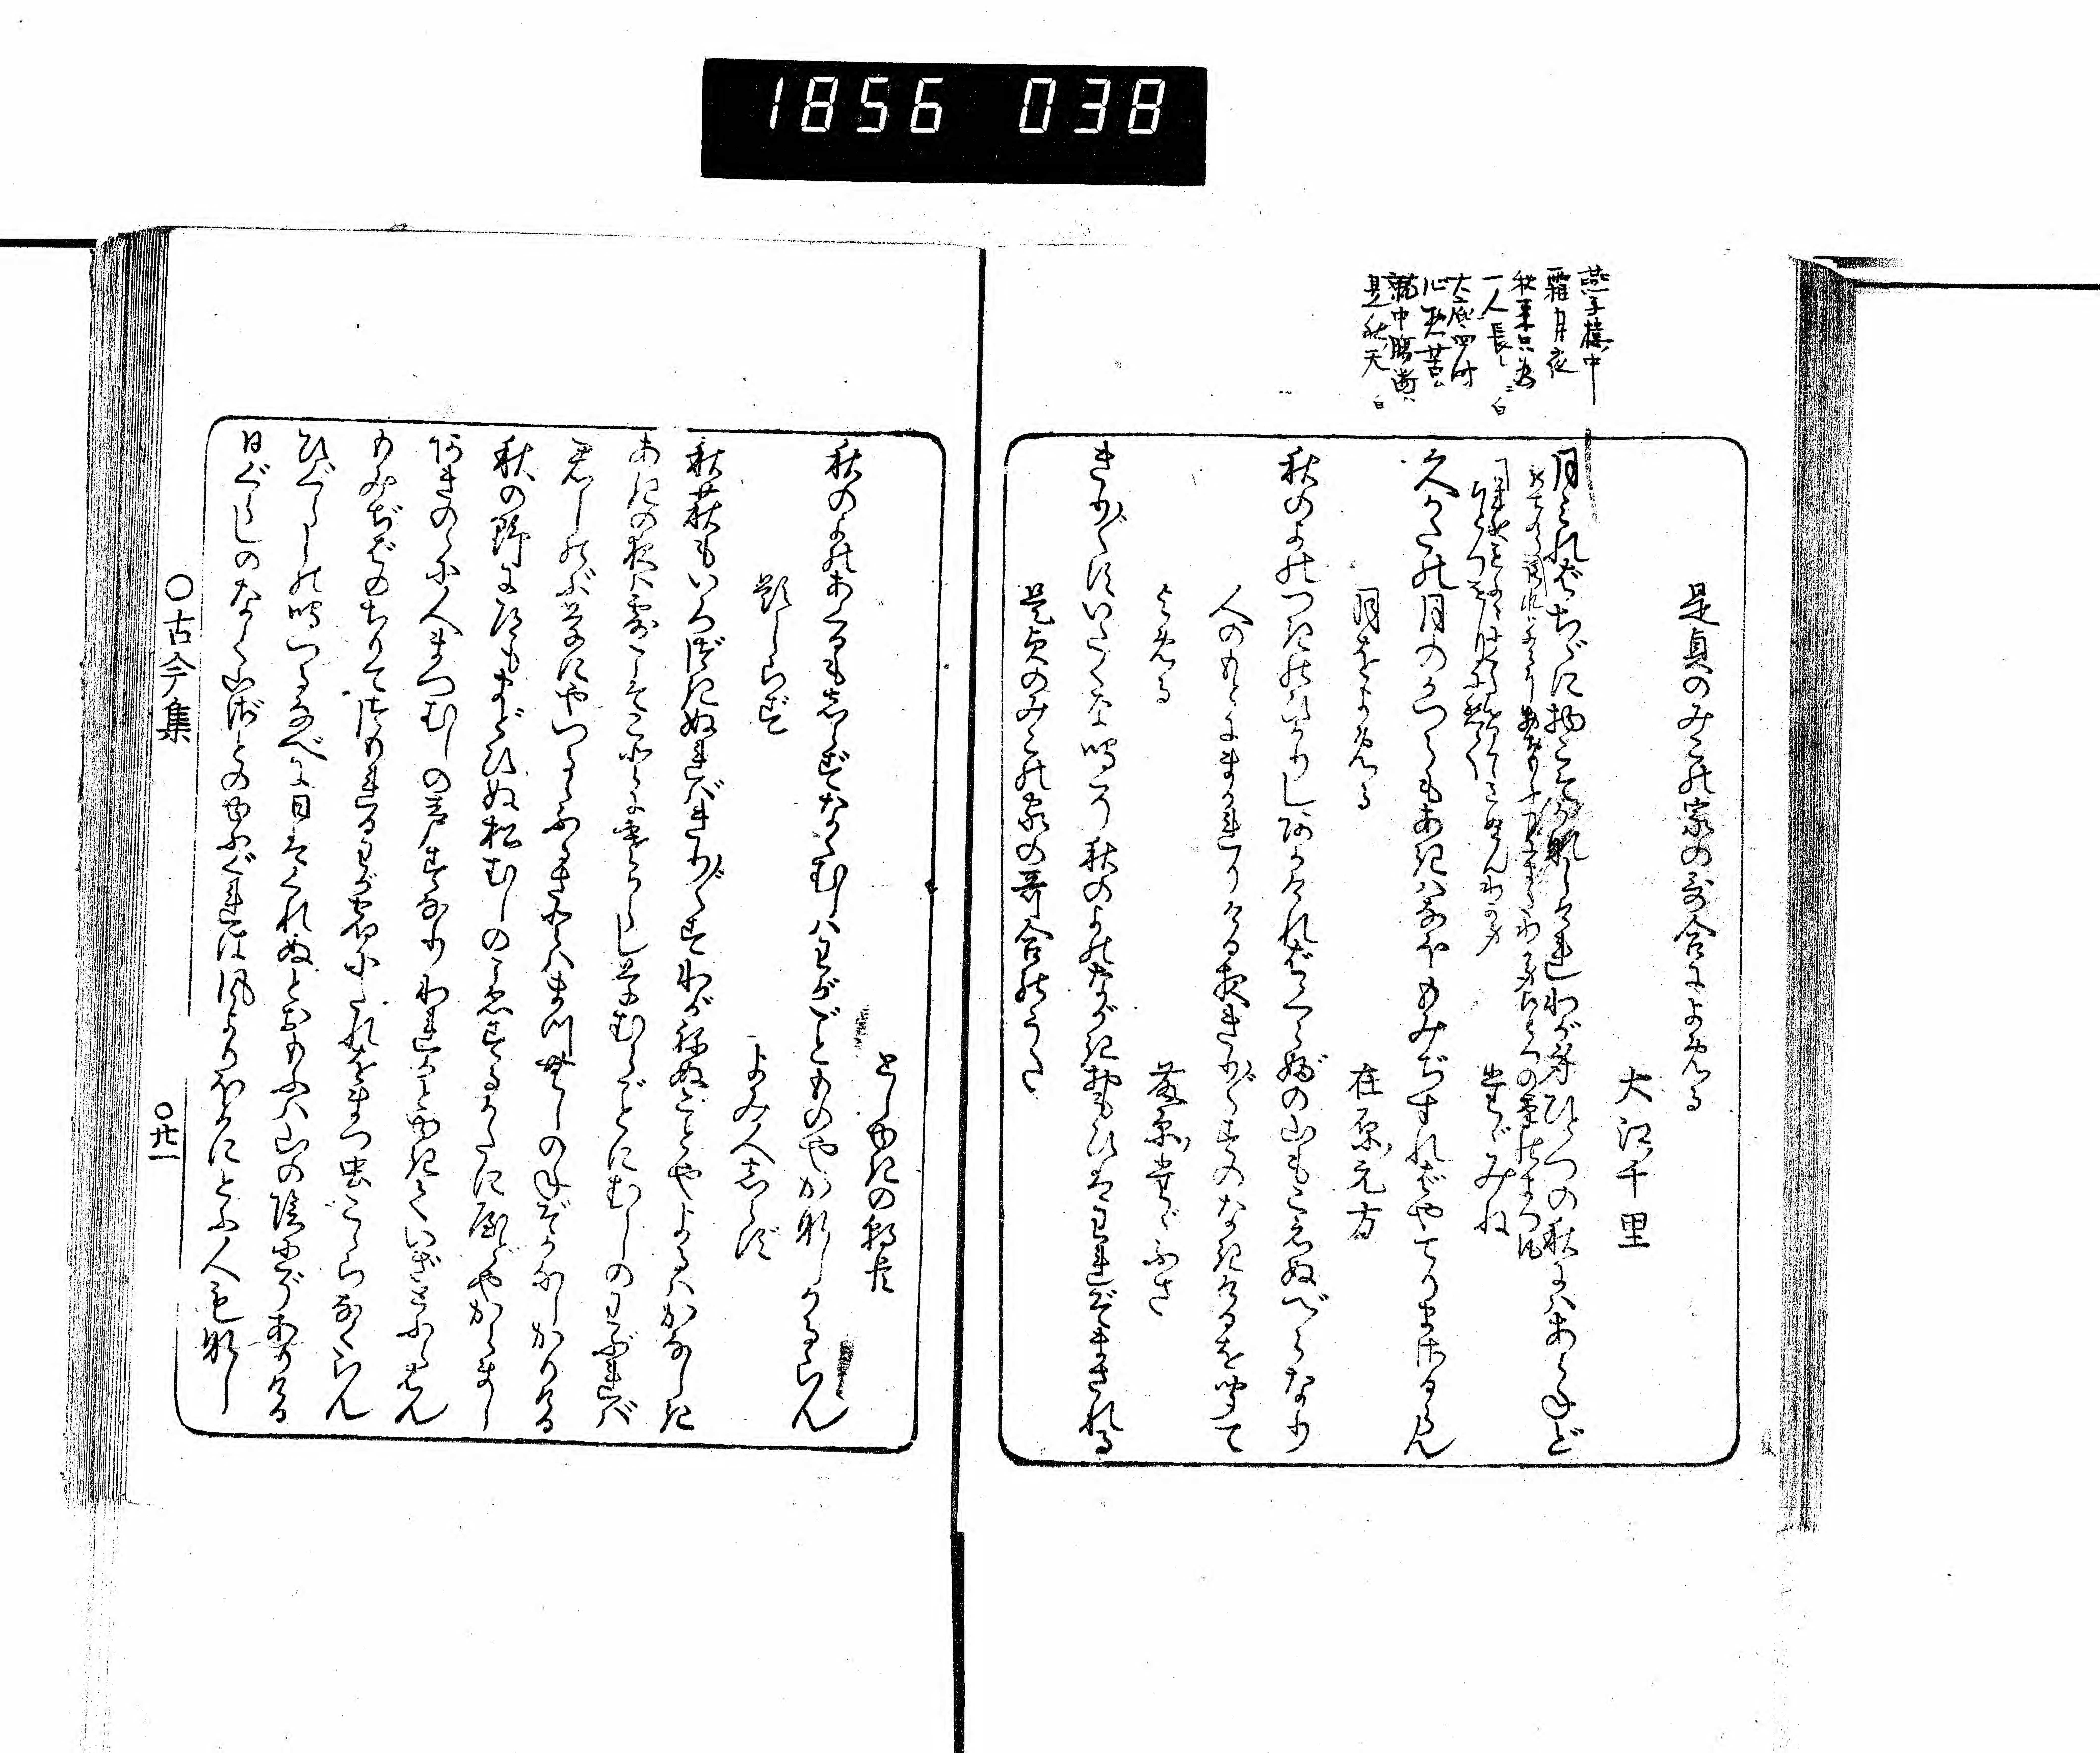 1856 038
燕子樓中
霜月夜
秋来只為
一人長 白
大底四時
心惣苦
就中腸断
是秋天 白
是貞のみこの家の哥合によめる
大江千里
月みればちゞに物こそかなしけれわが身ひとつの秋にはあらねど
たゞみね
久かたの月のかつらもあきはなほもみぢすればやてりまさるらん
月をよめる
在原元方
秋のよの月のひかりしあかければくらぶの山もこえぬべらなり
人のもとにまかれりける夜きり〴〵すのなきけるを聞て
よめる
藤原たゞふさ
きり〴〵すいたくな鳴そ秋のよのながき思ひはわれぞまされる
是貞のみこの家の哥合のうた
としゆきの朝臣
秋のよのあくるもしらずなくむしはわがごとものやかなしかるらん
題しらず
よみ人しらず
秋萩もいろづきぬればきり〴〵すわがねぬごとやよるはかなしき
あきの夜は露こそことにさむからし草むらごとにむしのわぶれば
君しのぶ草にやつるゝふるさとはまつむしの音ぞかなしかりける
秋の野に道もまどひぬ松むしのこゑするかたに宿やからまし
あきのゝに人まつむしの声すなりわれかとゆきていざとふらはん
もみぢばのちりてつもれるわが宿にたれをまつ虫こゝらなくらん
ひぐらしの鳴つるなべに日はくれぬとおもふは山の陰にぞありける
日ぐらしのなく山ざとのゆふぐれは風よりほかにとふ人もなし
〇古今集
〇廿一